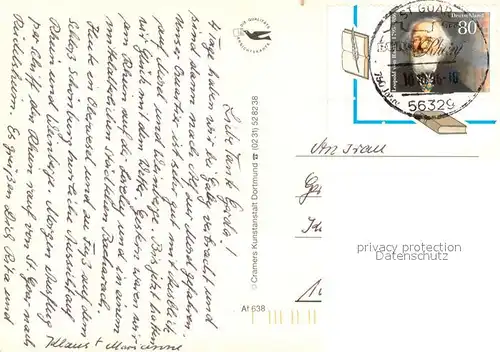 Liebe Tante Gerda!
4 Tage haben wir bei Gaby verbracht und
sind dann nach an der Mosel gefahren.
Unser Quartier ist sehr gut mit Ausblick
auf Mosel und Weinberge. Bis jetzt hatten wir
Glück mit dem Wetter. Gestern waren wir
am Rhein auf der Loreley und in einem
mittelalterlichen Städtchen Bacharach.
Heute in Oberwesel und zu Fuß auf dem
Schloß Schönburg herrliche Aussicht auf
Rhein und Weinberge. Morgen Ausflug
per Schiff den Rhein rauf von St. Goar nach
Rüdesheim. Es grüßen Dich Rita und
Klaus + Marianne
DIE QUALITÄTS
ANSICHTSKARTE
© Cramers Kunstanstalt Dortmund ☎ (02 31) 52 82 38
At 638
An Frau
ST GOAR
Deutschland
80
Rhein
56329
privacy protection
watermark